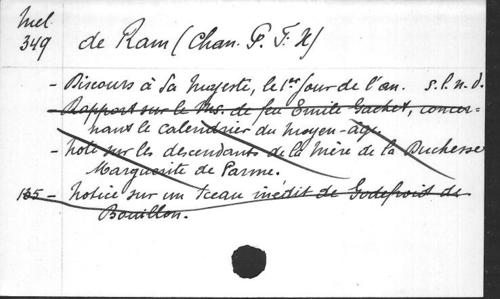 Mel
349
de Ram (Chan. P. F. X)
- Discours à Sa Majesté, le 1er jour de l'an. s.l.n.d.
- Rapport sur le Ms. de feu Emile Gachet, concer=
nant le calendrier du moyen-age.
- Note sur les descendants de la Mère de la Duchesse
Marguerite de Parme.
185 - Notice sur un sceau inédit de Godefroid de
Bouillon.